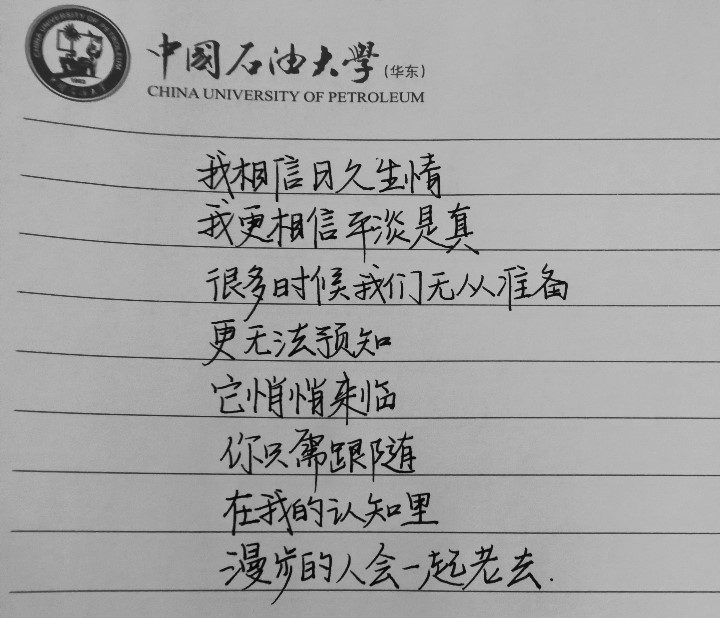 中國石油大學(华东)
CHINA UNIVERSITY OF PETROLEUM
我相信日久生情
我更相信平淡是真
很多时候我们无从准备
更无法预知
它悄悄来临
你只需跟随
在我的认知里
漫步的人会一起老去.